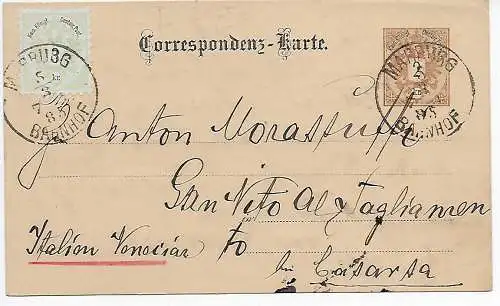 Correspondenz-Karte.
MARBURG
BAHNHOF
MARBURG
BAHNHOF
Anton Morassutti
San Vito al Tagliamen
Italien Veneciar to
bei Casarsa